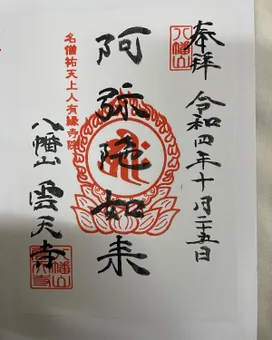 奉拝 令和四年十月二十五日
八幡山
阿弥陀如来
名僧祐天上人有縁寺院
八幡山 雲天寺